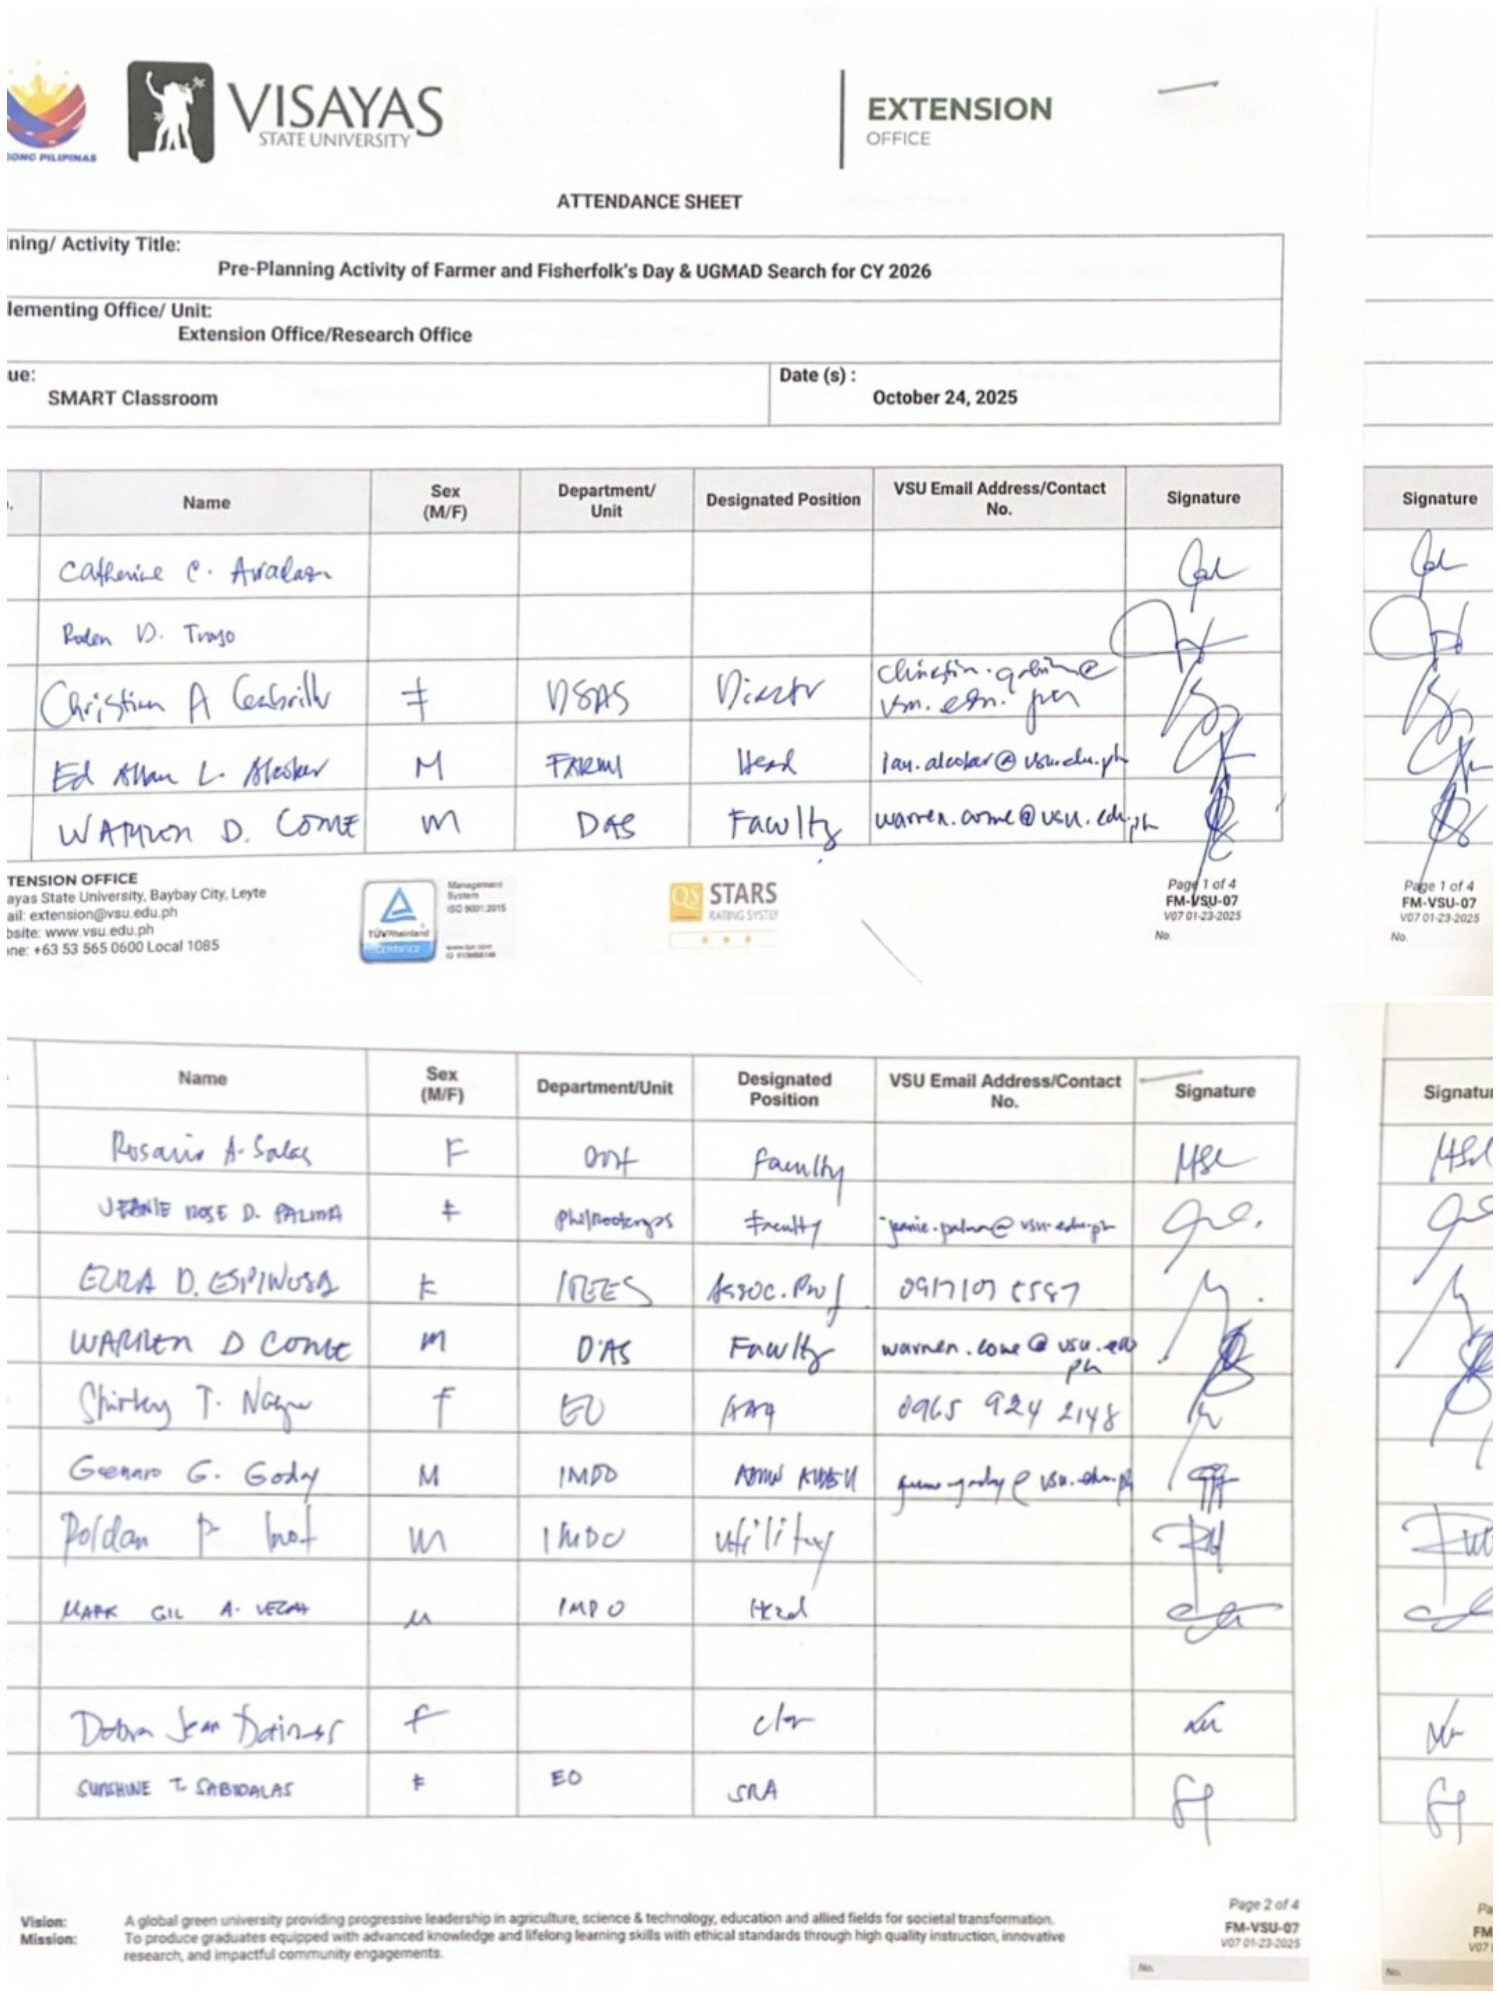 ONG PILIPINAS
VISAYAS
STATE UNIVERSITY
EXTENSION
OFFICE
ATTENDANCE SHEET
ning/ Activity Title:
Pre-Planning Activity of Farmer and Fisherfolk's Day & UGMAD Search for CY 2026
lementing Office/ Unit:
Extension Office/Research Office
ue:
SMART Classroom
Date (s) :
October 24, 2025
Name
Sex
(M/F)
Department/
Unit
Designated Position
VSU Email Address/Contact
No.
Signature
Signature
Catherine C.
D.
Christian A
F
DSAS
Director
Ed Allan L.
M
FARMI
Head
ian.alcober@vsu.edu.ph
WARREN D. COME
M
DAS
Faculty
warren.come@vsu.edu.ph
TENSION OFFICE
ayas State University, Baybay City, Leyte
ail: extension@vsu.edu.ph
bsite: www.vsu.edu.ph
ne: +63 53 565 0600 Local 1085
TÜVRheinland
CERTIFIED
Management
System
ISO 9001:2015
QS STARS
RATING SYSTEM
Page 1 of 4
FM-VSU-07
V07 01-23-2025
No.
Page 1 of 4
FM-VSU-07
V07 01-23-2025
No.
Name
Sex
(M/F)
Department/Unit
Designated
Position
VSU Email Address/Contact
No.
Signature
Signatur
Rosario A. Salas
F
Faculty
JEANIE ROSE D. PALMA
F
PhilRootcrops
Faculty
jeanie.palma@vsu.edu.ph
D. ESPINOSA
F
ITEES
Assoc. Prof
WARREN D COME
M
DAS
Faculty
warren.come@vsu.edu
ph
Shirley T.
F
EO
0965 924 2148
Genaro G. Goday
M
IMDO
Roldan P
M
IMDO
Utility
MARK GIL A. VEGA
M
IMDO
Head
Jean
F
SUNSHINE T. SABIDALAS
F
EO
SRA
Vision:
A global green university providing progressive leadership in agriculture, science & technology, education and allied fields for societal transformation.
Mission:
To produce graduates equipped with advanced knowledge and lifelong learning skills with ethical standards through high quality instruction, innovative
research, and impactful community engagements.
Page 2 of 4
FM-VSU-07
V07 01-23-2025
No.
Pa
FM
V07
No.